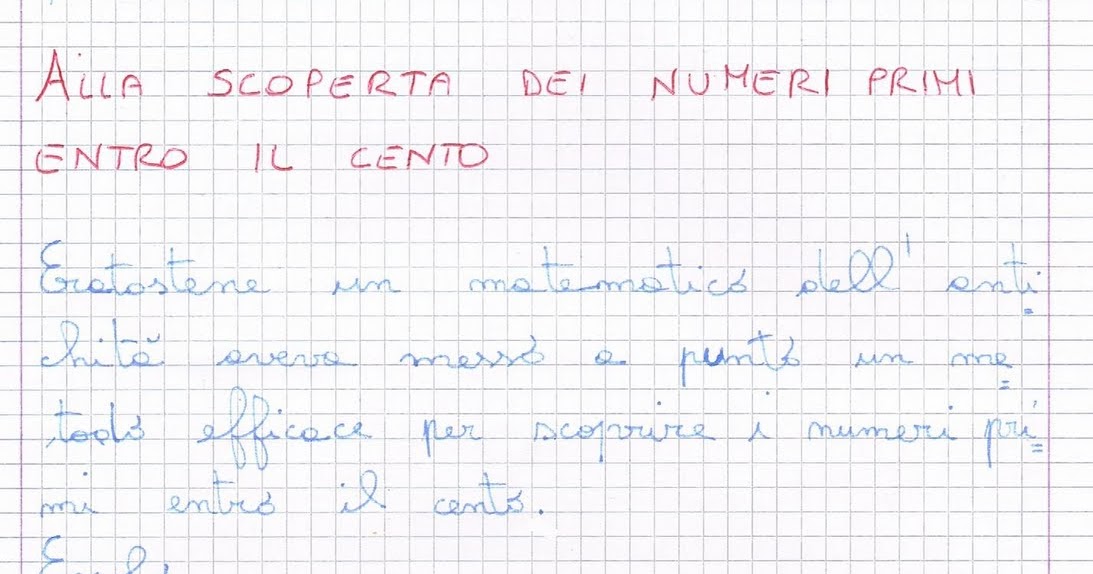 ALLA SCOPERTA DEI NUMERI PRIMI
ENTRO IL CENTO
Eratostene un matematico dell'anti
chità aveva messo a punto un me
todo efficace per scoprire i numeri pri
mi entro il cento.